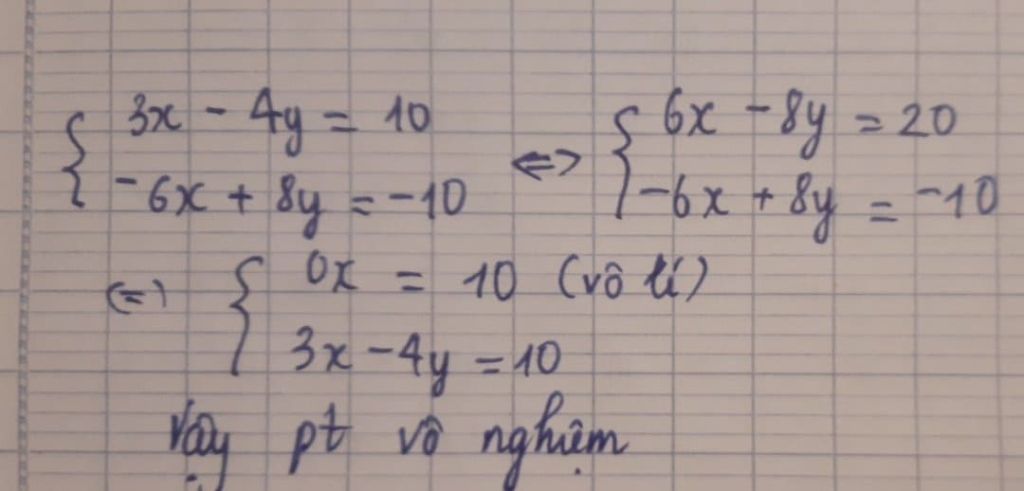 { 3x - 4y = 10 <=> { 6x - 8y = 20
-6x + 8y = -10 -6x + 8y = -10
<=> { 0x = 10 (vô lí)
3x - 4y = 10
Vậy pt vô nghiệm